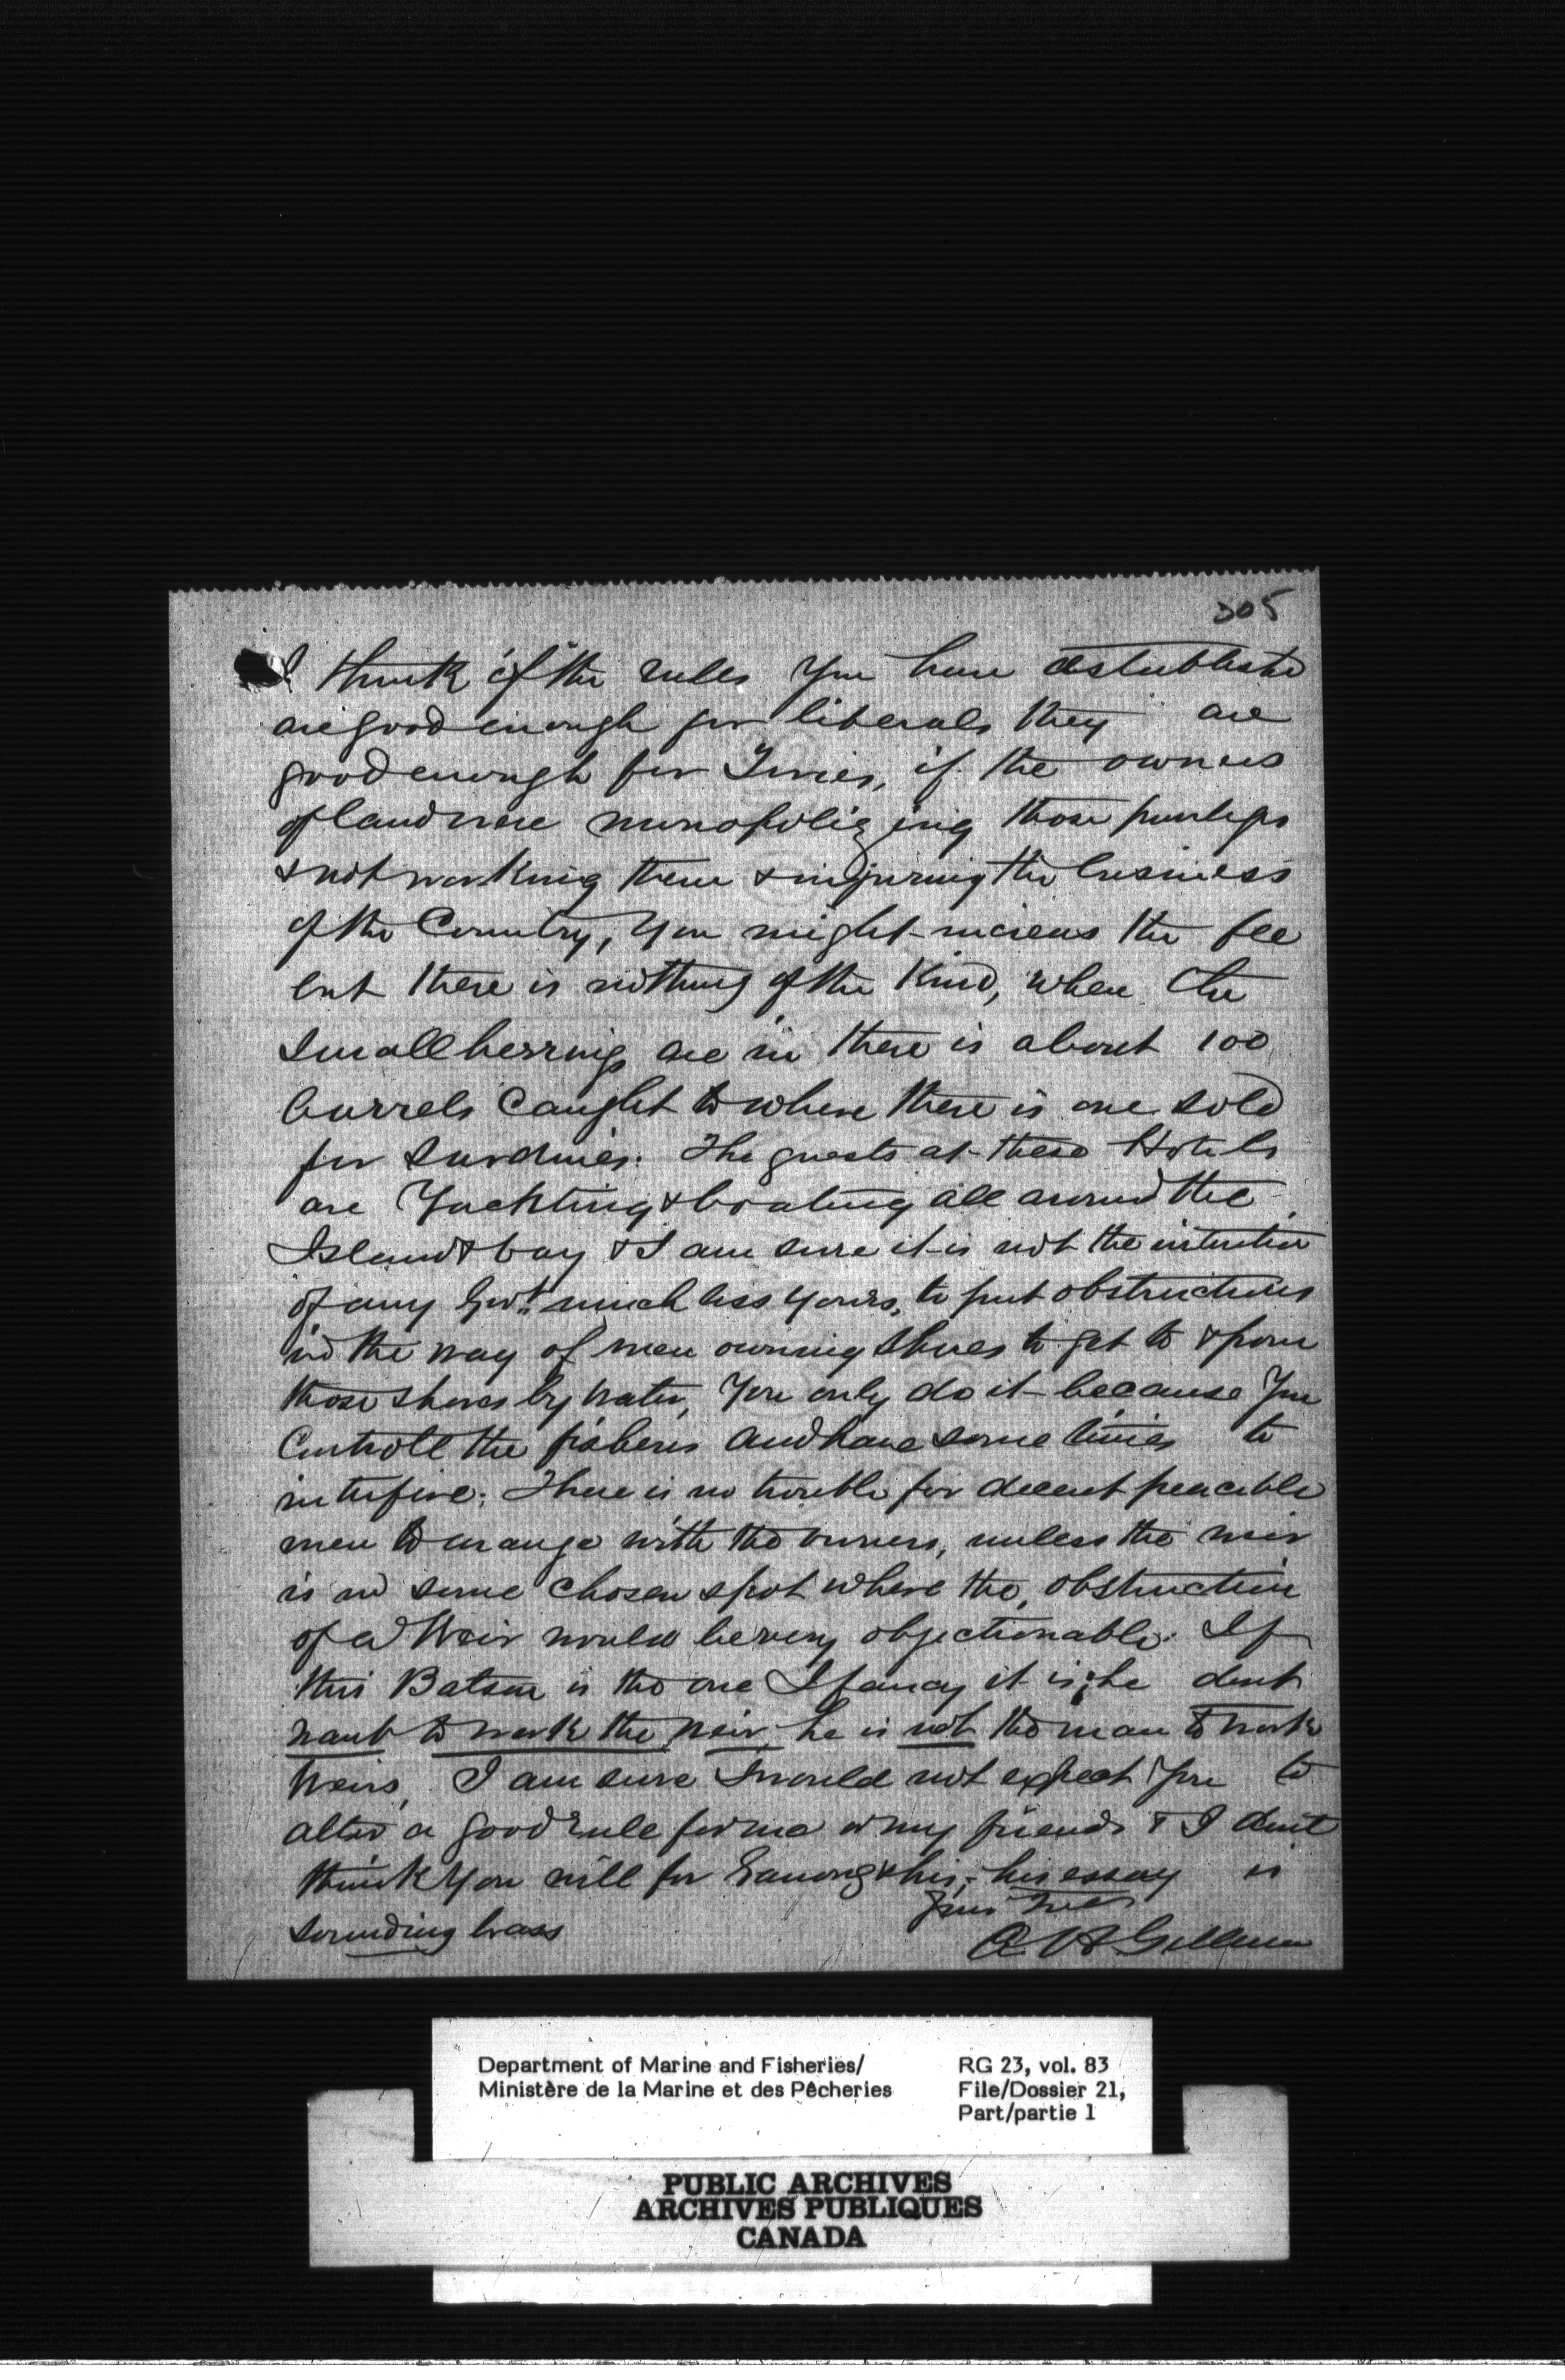 305
I think if the rules you have established
are good enough for liberals they are
good enough for Tories, if the owners
of land were monopolizing those privileges
& not working them & injuring the business
of the Country, you might increas the fee
but there is nothing of the Kind, when the
small herrings are in there is about 100
barrels caught to where there is one sold
for Sardines. The guests at these Hotels
are Yachting & boating all around the
Island & bay & I am sure it is not the intention
of any Govt. much less yours, to put obstructions
in the way of men owning shores to get to & from
those shores by water, You only do it because you
Controll the fisheris and have some times to
interfere. There is no trouble for decent peacable
men to arange with the owners, unless the weir
is in some chosen spot where the obstruction
of a Weir would be very objectionable. If
this Batson is the one I fancy it is; he dont
want to work the weir, he is not the man to work
Weirs, I am sure I would not expect you to
alter a good rule for me or my friends & I dont
think you will for Ganong & his, - his essay is
sounding brass
Yours Truly
Department of Marine and Fisheries/
Ministère de la Marine et des Pêcheries
RG 23, vol. 83
File/Dossier 21,
Part/partie 1
PUBLIC ARCHIVES
ARCHIVES PUBLIQUES
CANADA